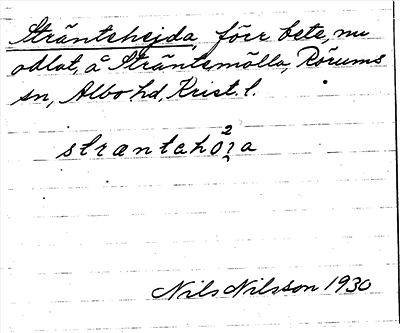 Sträntehejda, förr bete, nu
odlat, å Sträntemölla, Rörums
sn, Albo hd, Krist. l.
Nils Nilsson 1930